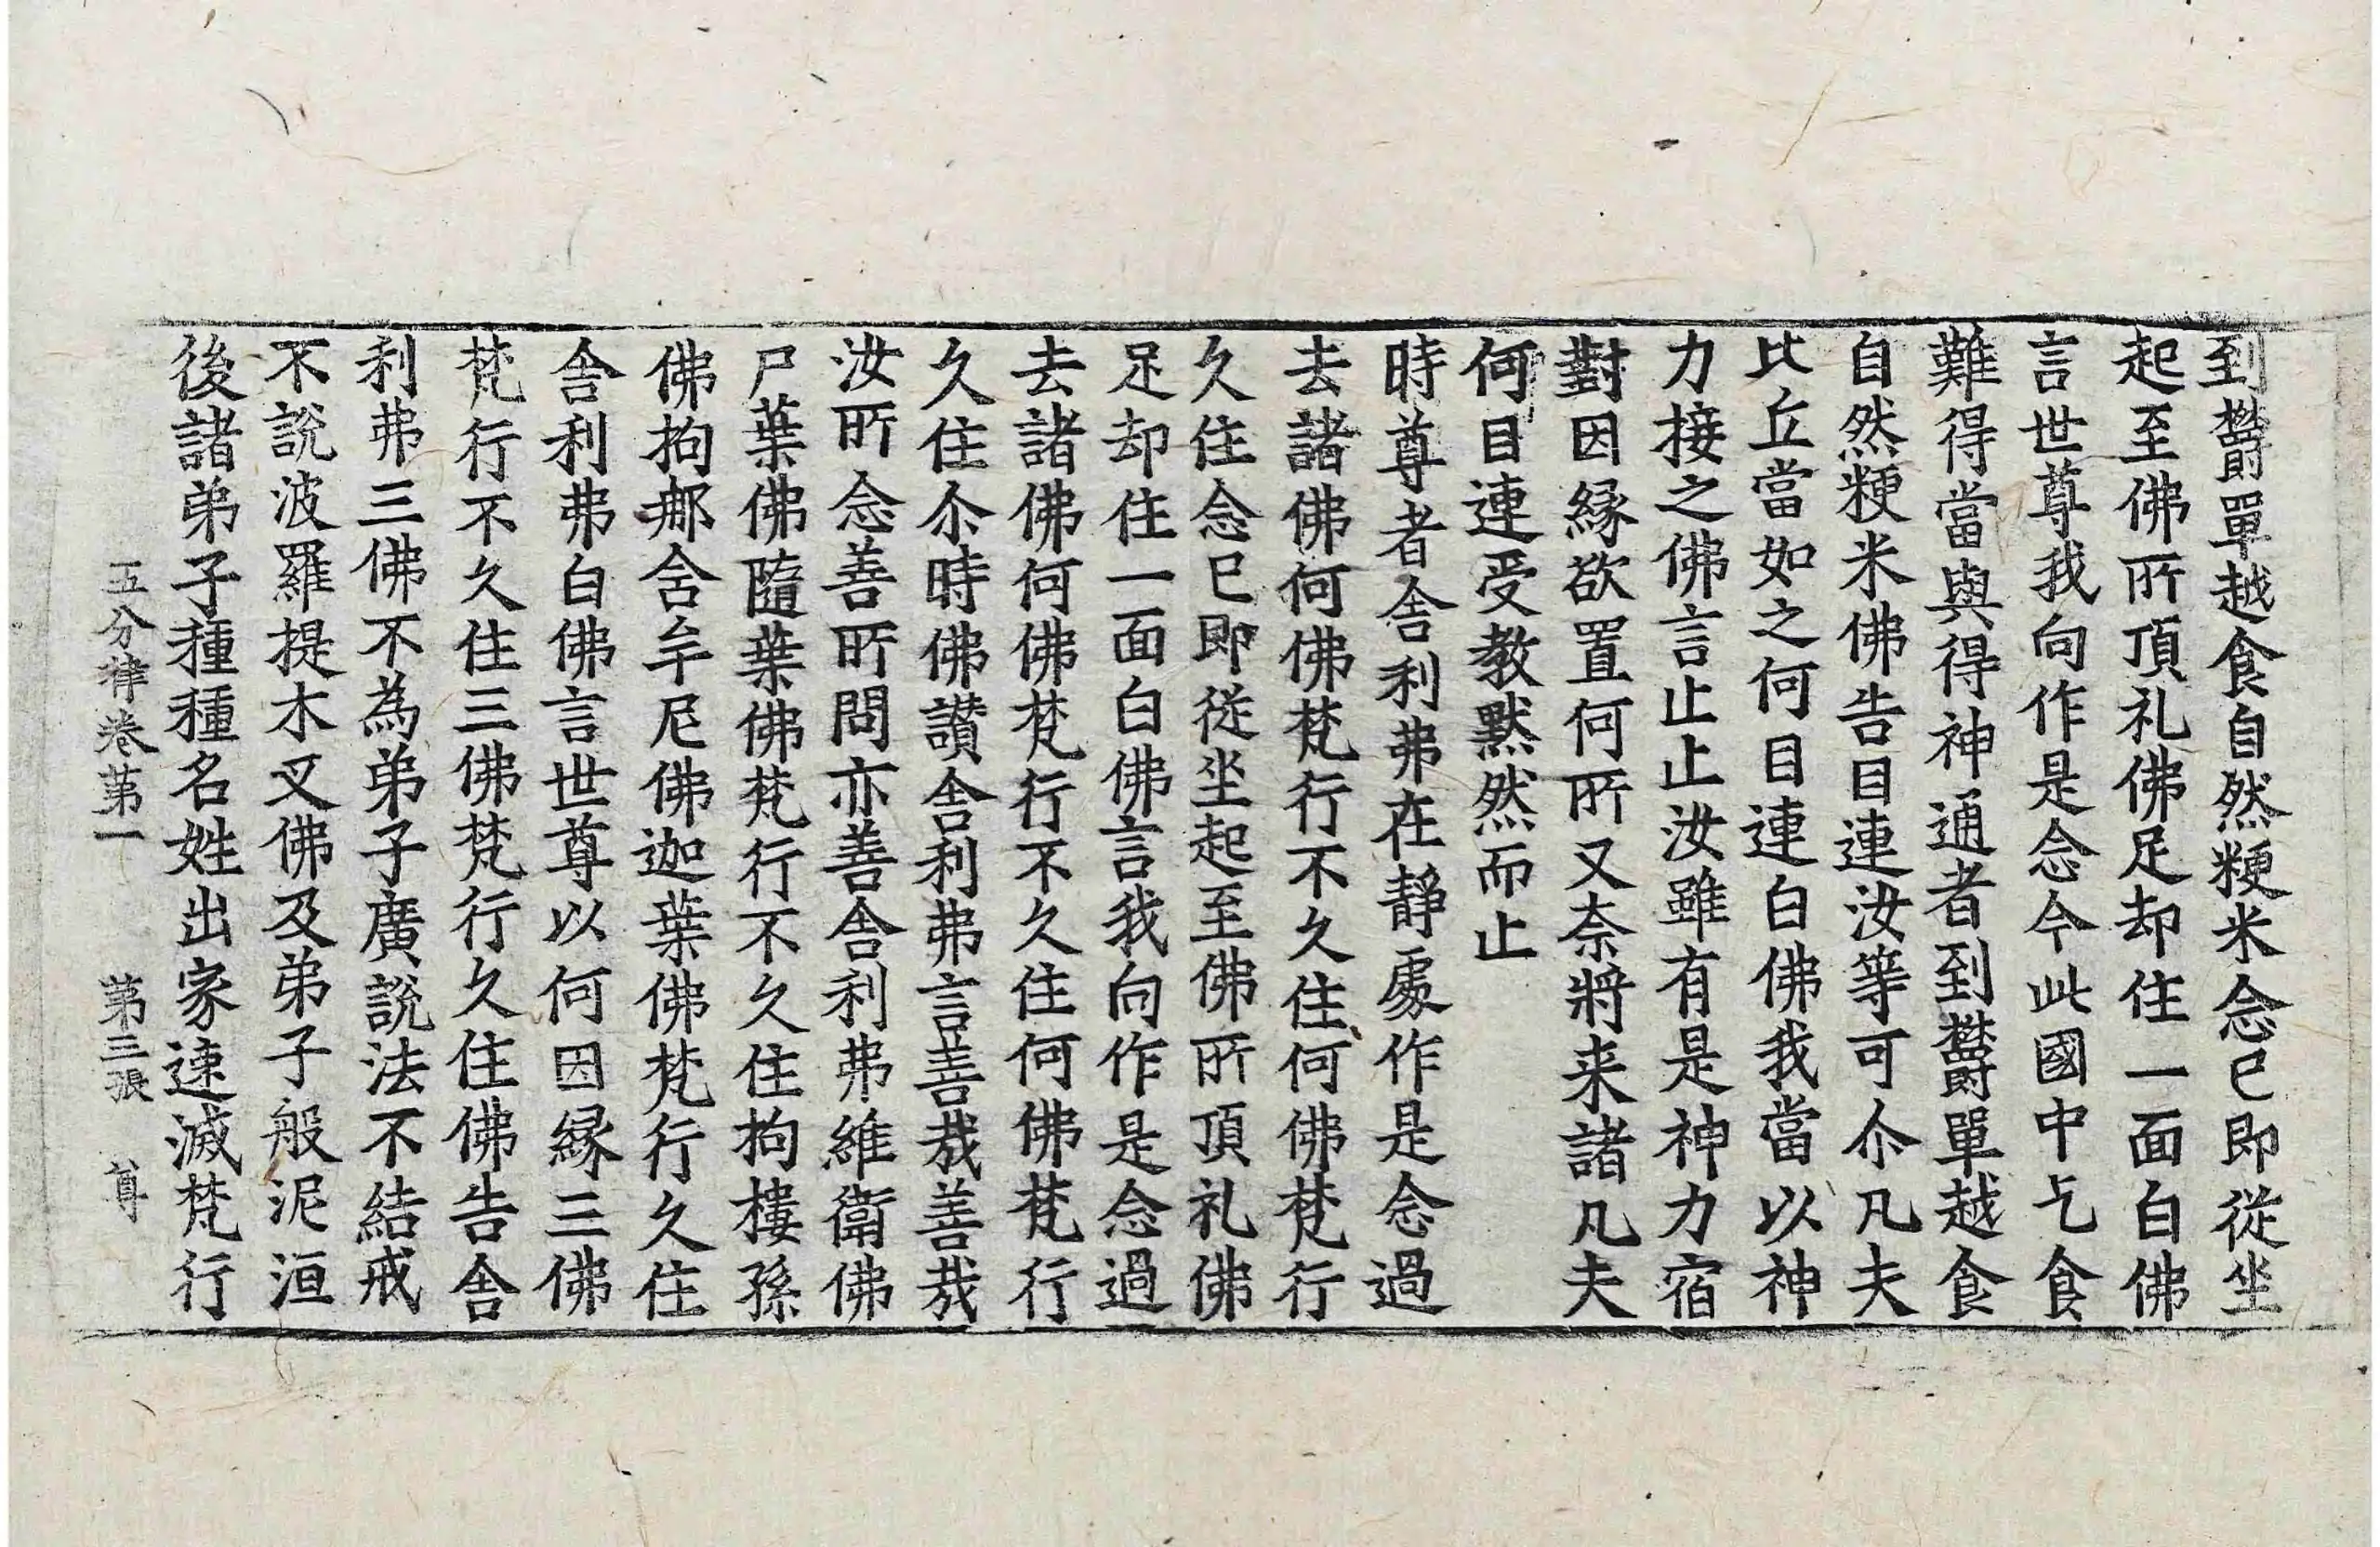 到欝單越食自然粳米念已即從坐
起至佛所頂礼佛足却住一面白佛
言世尊我向作是念今此國中乞食
難得當與得神通者到欝單越食
自然粳米佛告目連汝等可尒凡夫
比丘當如之何目連白佛我當以神
力接之佛言止止汝雖有是神力宿
對因緣欲置何所又柰將来諸凡夫
何目連受教黙然而止
時尊者舍利弗在靜處作是念過
去諸佛何佛梵行不久住何佛梵行
久住念已即從坐起至佛所頂礼佛
足却住一面白佛言我向作是念過
去諸佛何佛梵行不久住何佛梵行
久住尒時佛讚舍利弗言善哉善哉
汝所念善所問亦善舍利弗維衛佛
尸葉佛隨葉佛梵行不久住拘樓孫
佛拘那含牟尼佛迦葉佛梵行久住
舍利弗白佛言世尊以何因緣三佛
梵行不久住三佛梵行久住佛告舍
利弗三佛不為弟子廣說法不結戒
不說波羅提木叉佛及弟子般泥洹
後諸弟子種種名姓出家速滅梵行
五分律卷第一 第三張 尊